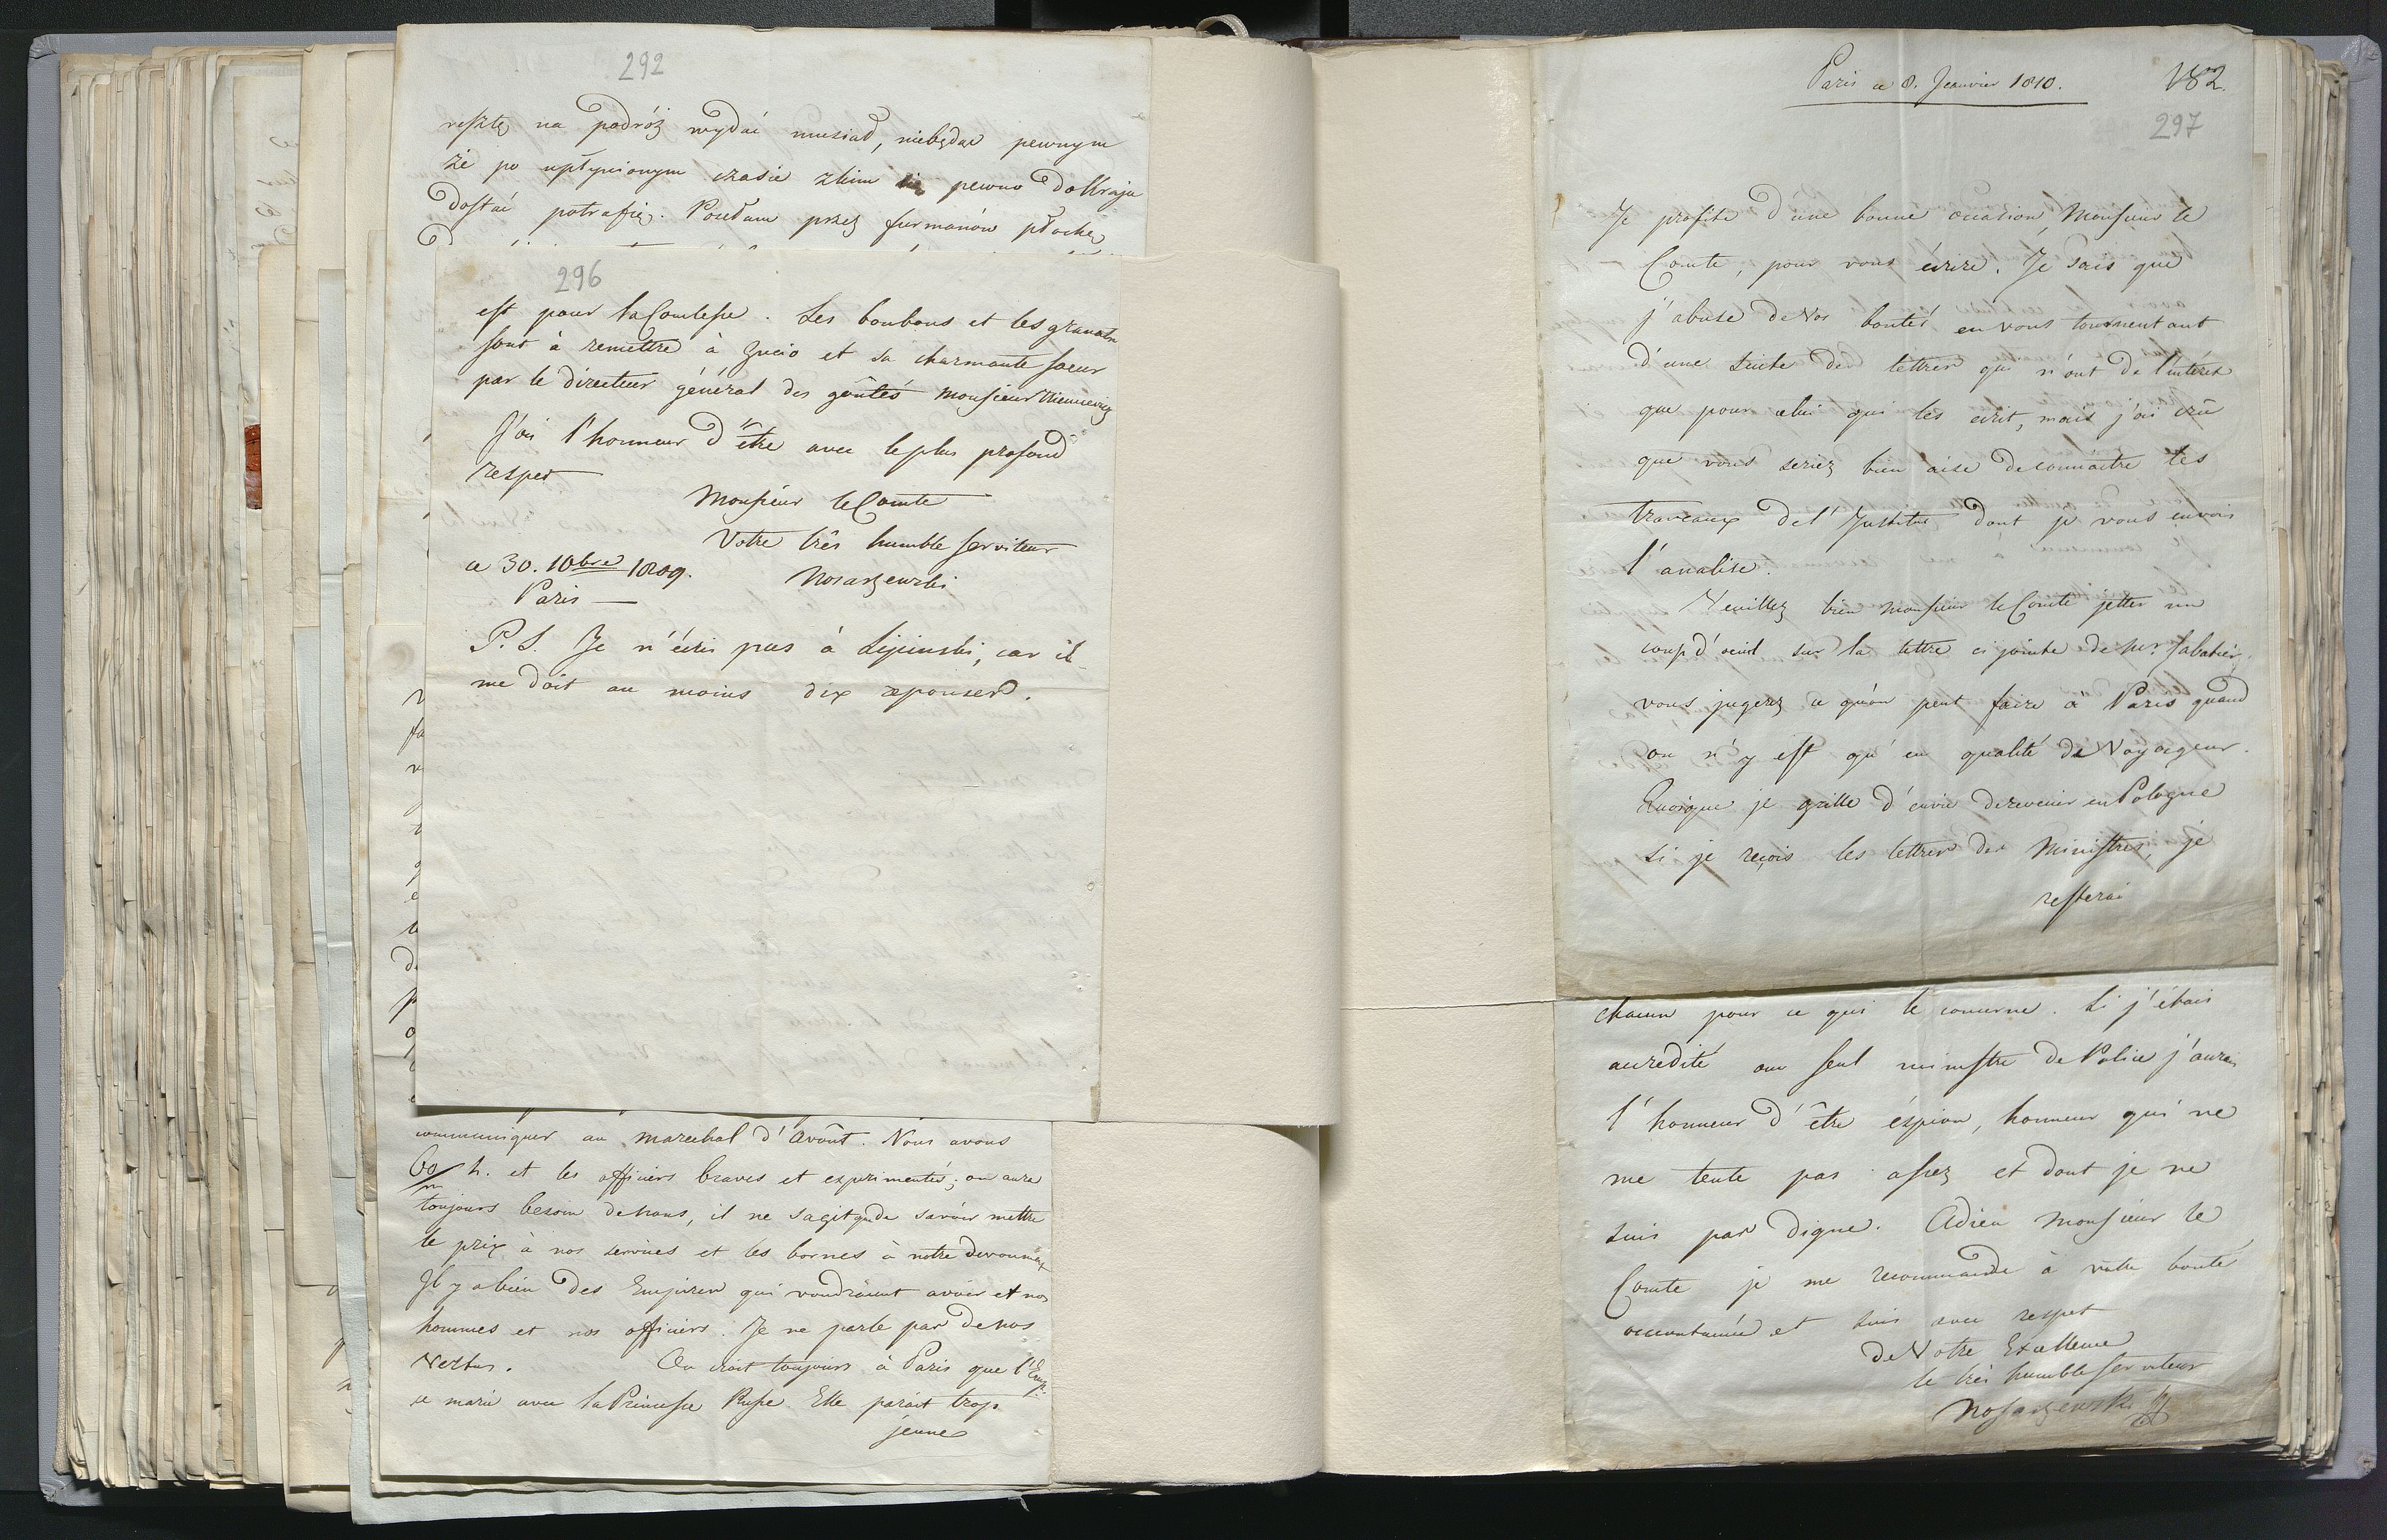 292
resztę na podróż wydać musiał, niebędąc pewnym
że po upłynionym czasie zkim pewno do Kraju
dostać potrafię. Posełam przez furmanów płochę
296
est pour la Comtesse. Les bonbons et les
sont à remettre à Zucio et sa charmante soeur
par le directeur général des goûtés Monsieur
J'ai l'honneur d'être avec le plus profond
respet
Monsieur le Comte
Votre très humble serviteur
ce 30. 10bre 1809. Nosarzewski
Paris
P.S. Je n'écris pas à Lipinski, car il
me doit au moins dix reponses.
communiquer au marechal d'Avoût. Nous avons
60/m h. et les officiers braves et experimentés; on aura
toujours besoin de nous, il ne sagit que de savoir mettre
le prix à nos services et les bornes à notre
Il y a bien des Empires qui voudraient avoir et nos
hommes et nos officiers. Je ne parle pas de nos
Vertus. On croit toujours à Paris que l'Emp.
se marie avec la Princesse Russe. Elle parait trop
jeune
Paris ce 8. Janvier 1810. 182.
297
Je profite d'une bonne occasion, Monsieur le
Comte, pour vous écrire. Je sais que
j'abuse de Vos bontés en vous tourmentant
d'une suite de lettres qui n'ont de l'intéret
que pour celui qui les ecrit, mais j'ai crû
que vous seriez bien aise de connaitre les
travaux de l'Institut dont je vous envois
l'analise.
Veuillez bien Monsieur le Comte jetter un
coup d'oeuil sur la lettre ci jointe de Mr. Sabatier,
vous jugerez ce qu'on peut faire à Paris quand
on n'y est qu'en qualité de Voyageur.
Quoique je grille d'envie de revenir en Pologne
si je reçois les lettres des Ministres, je
resterai
chacun pour ce qui le concerne. Si j'étais
accredité au seul ministre de Police j'aurais
l'honneur d'être éspion, honneur qui ne
me tente pas assez et dont je ne
suis pas digne. Adieu Monsieur le
Comte je me recommande à votre bonté
accoutumée et suis avec respet
de Votre Excellence
le très humble serviteur
Nosarzewski